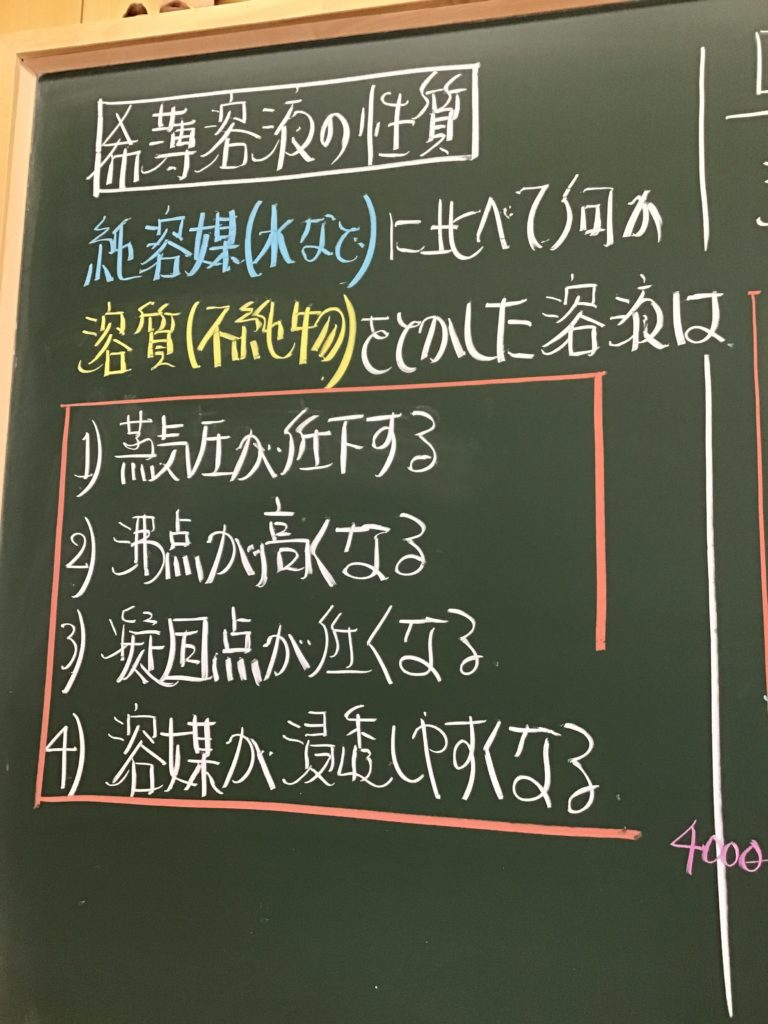 希薄溶液の性質
純溶媒(水など)に比べて何か
溶質(不純物)をとかした溶液は
1) 蒸気圧が低下する
2) 沸点が高くなる
3) 凝固点が低くなる
4) 溶媒が浸透しやすくなる
4000